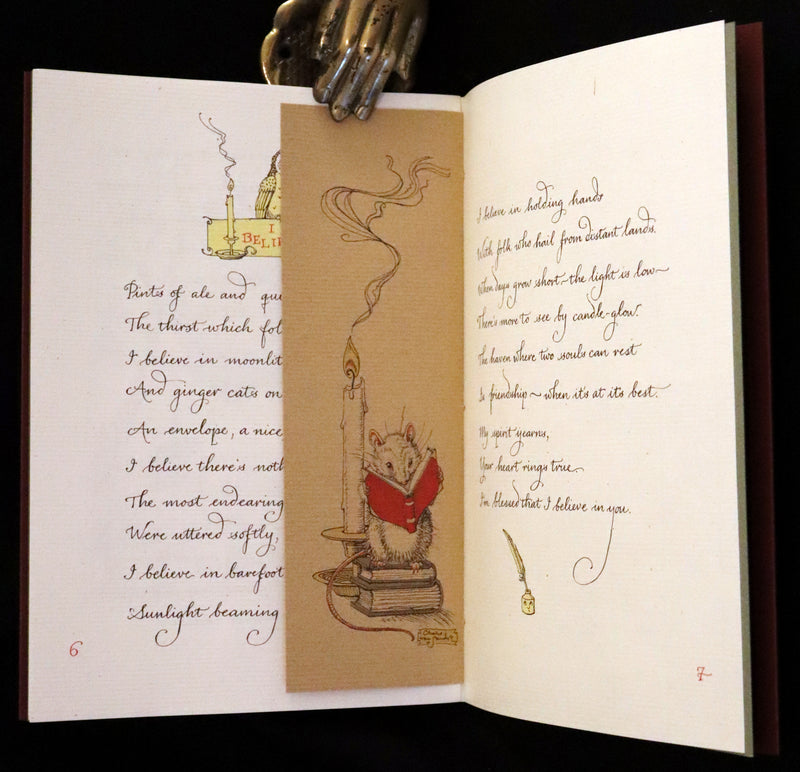 I
BELI
Pints of ale and qui
The thirst which fol
I believe in moonlit
And ginger cats on
An envelope, a nice
I believe there's noth
The most endearing
Were uttered softly,
I believe in barefoot
Sunlight beaming
6
I believe in holding hands
With folk who hail from distant lands.
When days grow short~the light is low~
There's more to see by candle-glow.
The haven where two souls can rest
Is friendship~when it's at its best.
My spirit yearns,
Your heart rings true.
I'm blessed that I believe in you.
7